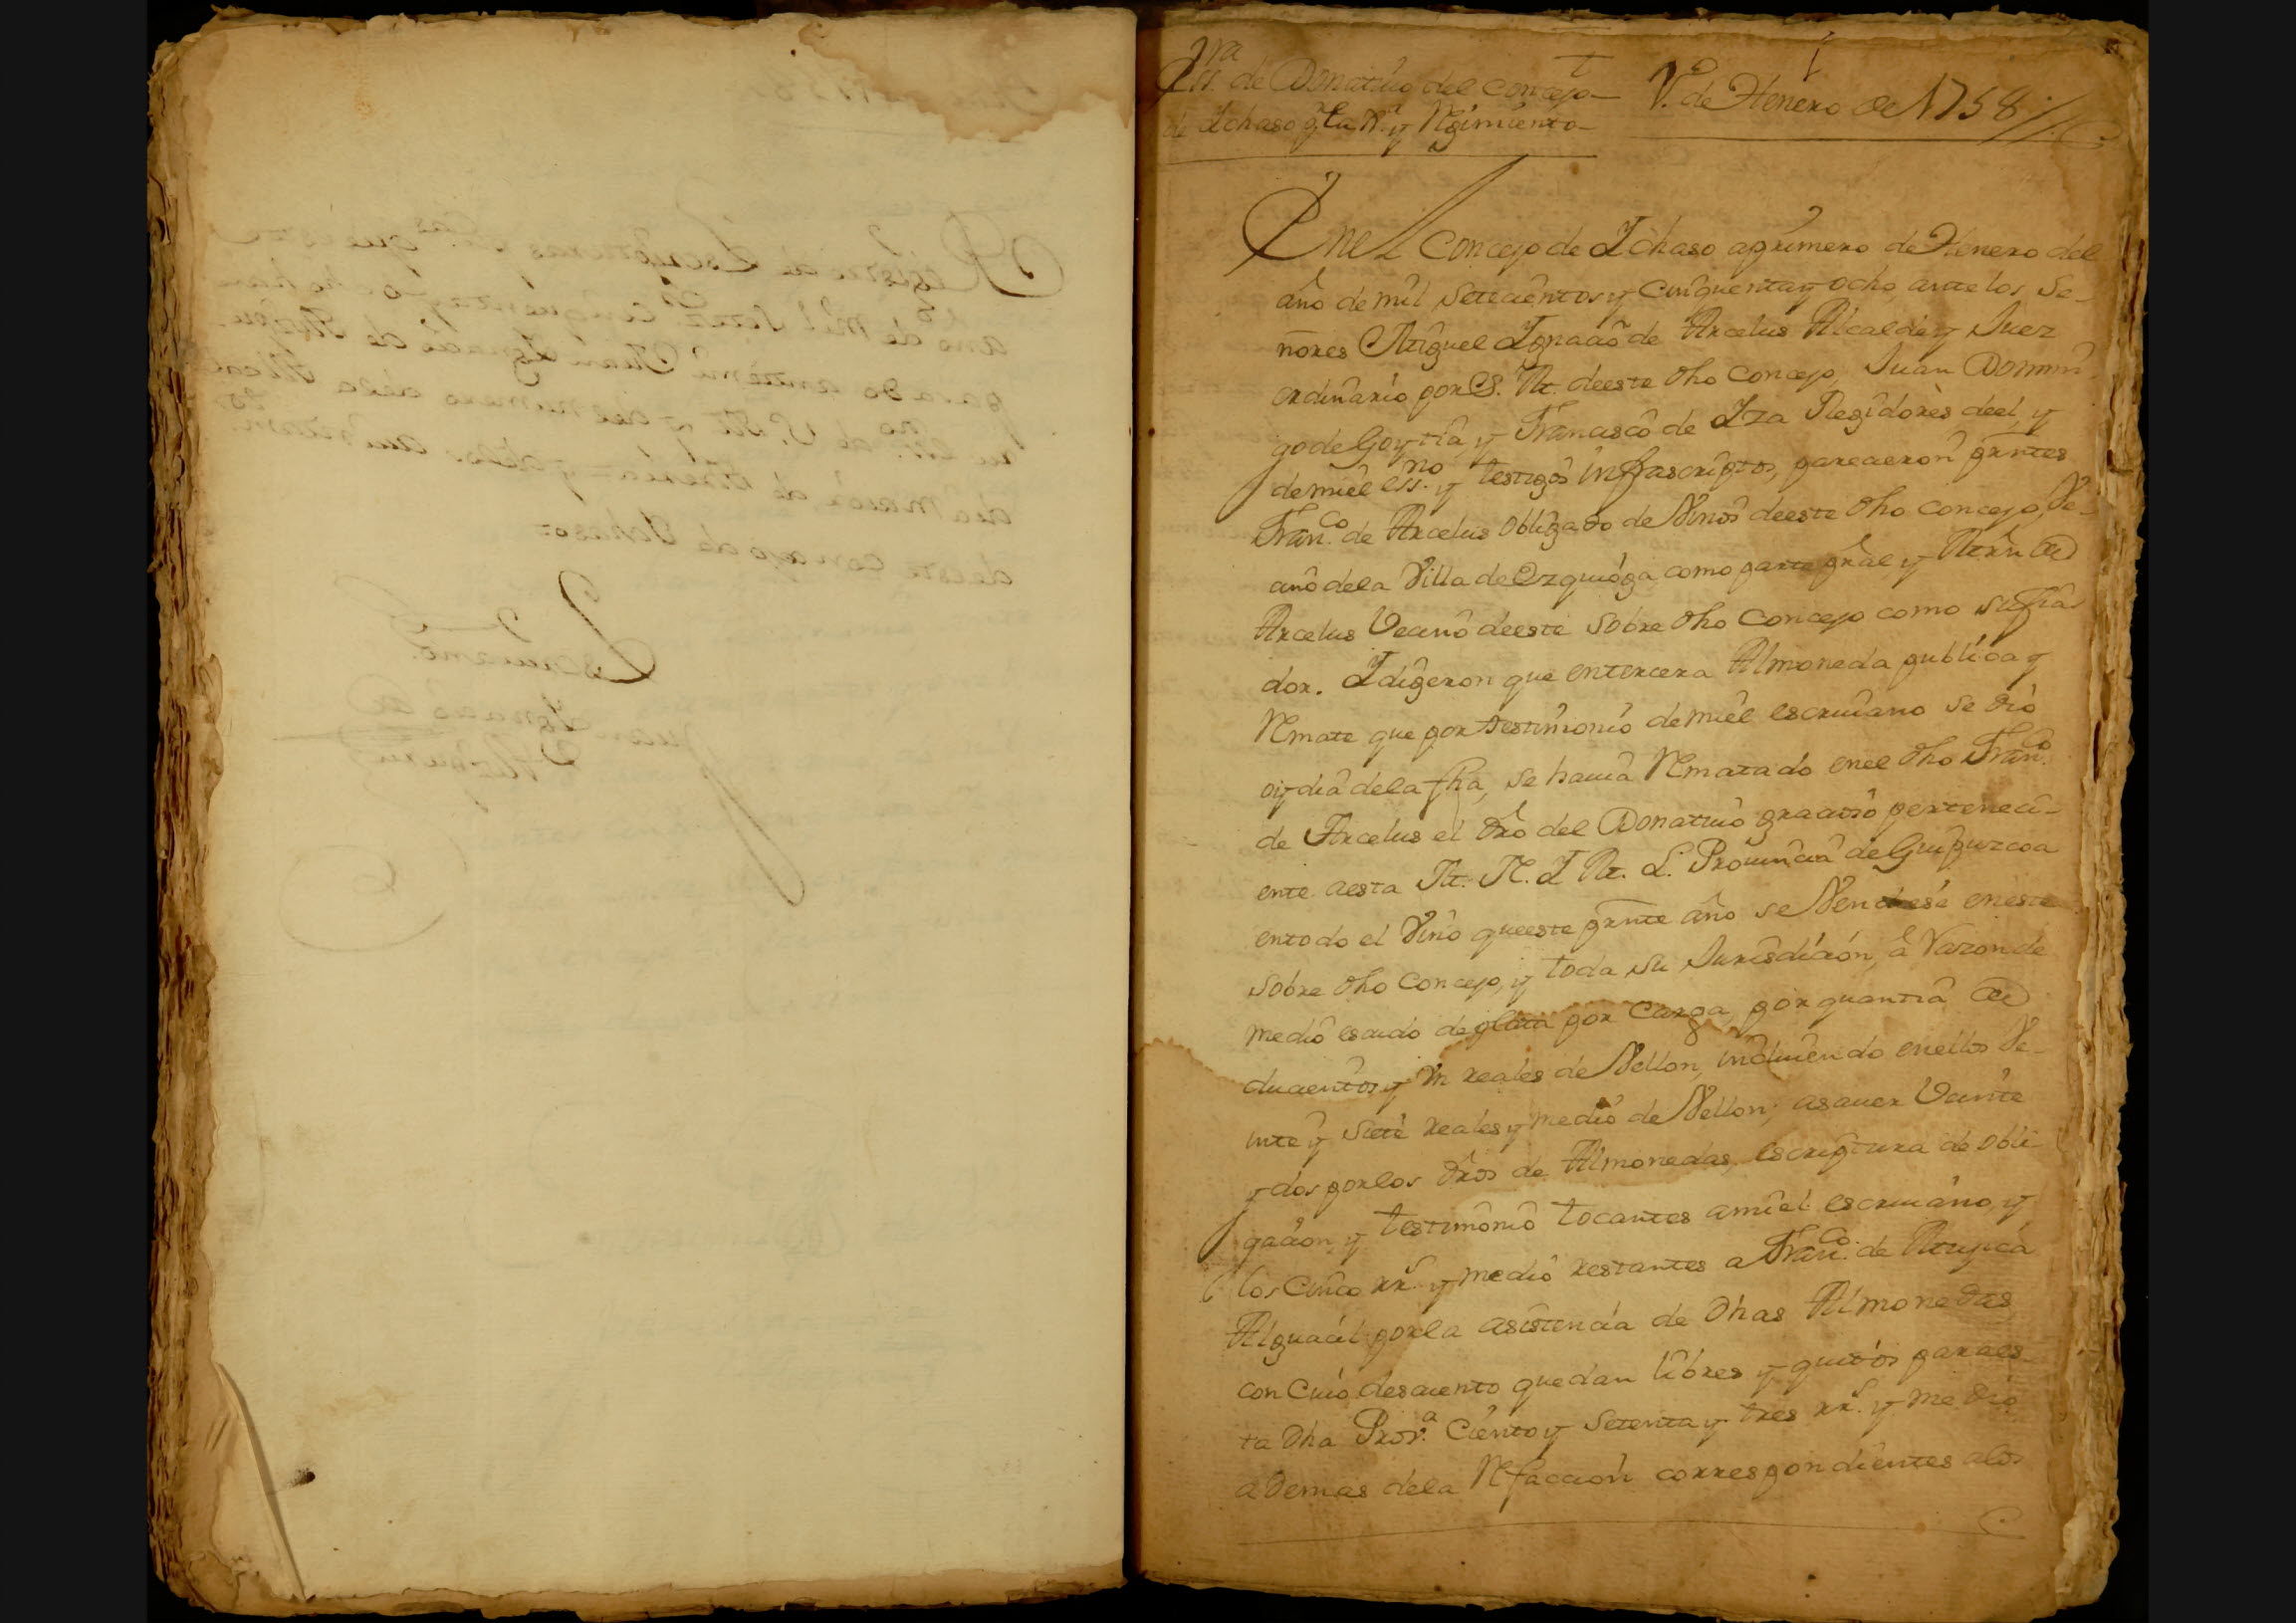 1
Ess.ra de Donatiuo del Concejo
de Ichaso
y Rgimiento
V. de Henero de 1758//.
Enel Concejo de Ichaso aprimero de Henero del
año de mil setecientos y cinquenta y ocho, ante los Se-
ñores Miguel Ignacio de Arcelus Alcalde y Juez
ordinario por S. M. deeste dho Concejo, Juan Domin-
go de Goytia, y Francisco de Iza Regidores deel, y
de miel ess.no y testigos infrascriptos, parecieron prntes
Fran.co de Arcelus obligado de Vinos deeste dho Concejo, Ve-
cino dela Villa de Ezquioga como parte pral, y Mrn de
Arcelus Vecino deeste sobre dho Concejo como su fia-
dor. I digeron que entercera Almoneda publica y
Rmate que por testimonio de miel escriuano se dio
oy dia dela fha, se hauia Rmatado enel dho Fran.co
de Arcelus el dro del Donatiuo gracioso perteneci-
ente aesta M. N. I M. L. Prouincia de Guipuzcoa
entodo el Vino queeste prnte año se Vendiese eneste
sobre dho Concejo, y toda su Jurisdicion, à razon de
medio escudo de plata por Carga, por quantia de
ducientos y Vn reales de Vellon, incluiendo enellos Ve-
inte y siete reales y medio de Vellon, asauer Veinte
y dos por los dros de Almonedas, escriptura de obli-
gacion, y testimonio tocantes amiel escriuano, y
los cinco rr.s y medio restantes a Fran.co de Mugica
Alguacil por la asistencia de dhas Almonedas,
con cuio descuento quedan libres y quitos para es-
ta dha Prov.a Ciento y setenta y tres rr.s y medio
ademas dela Rfaccion correspondientes alos